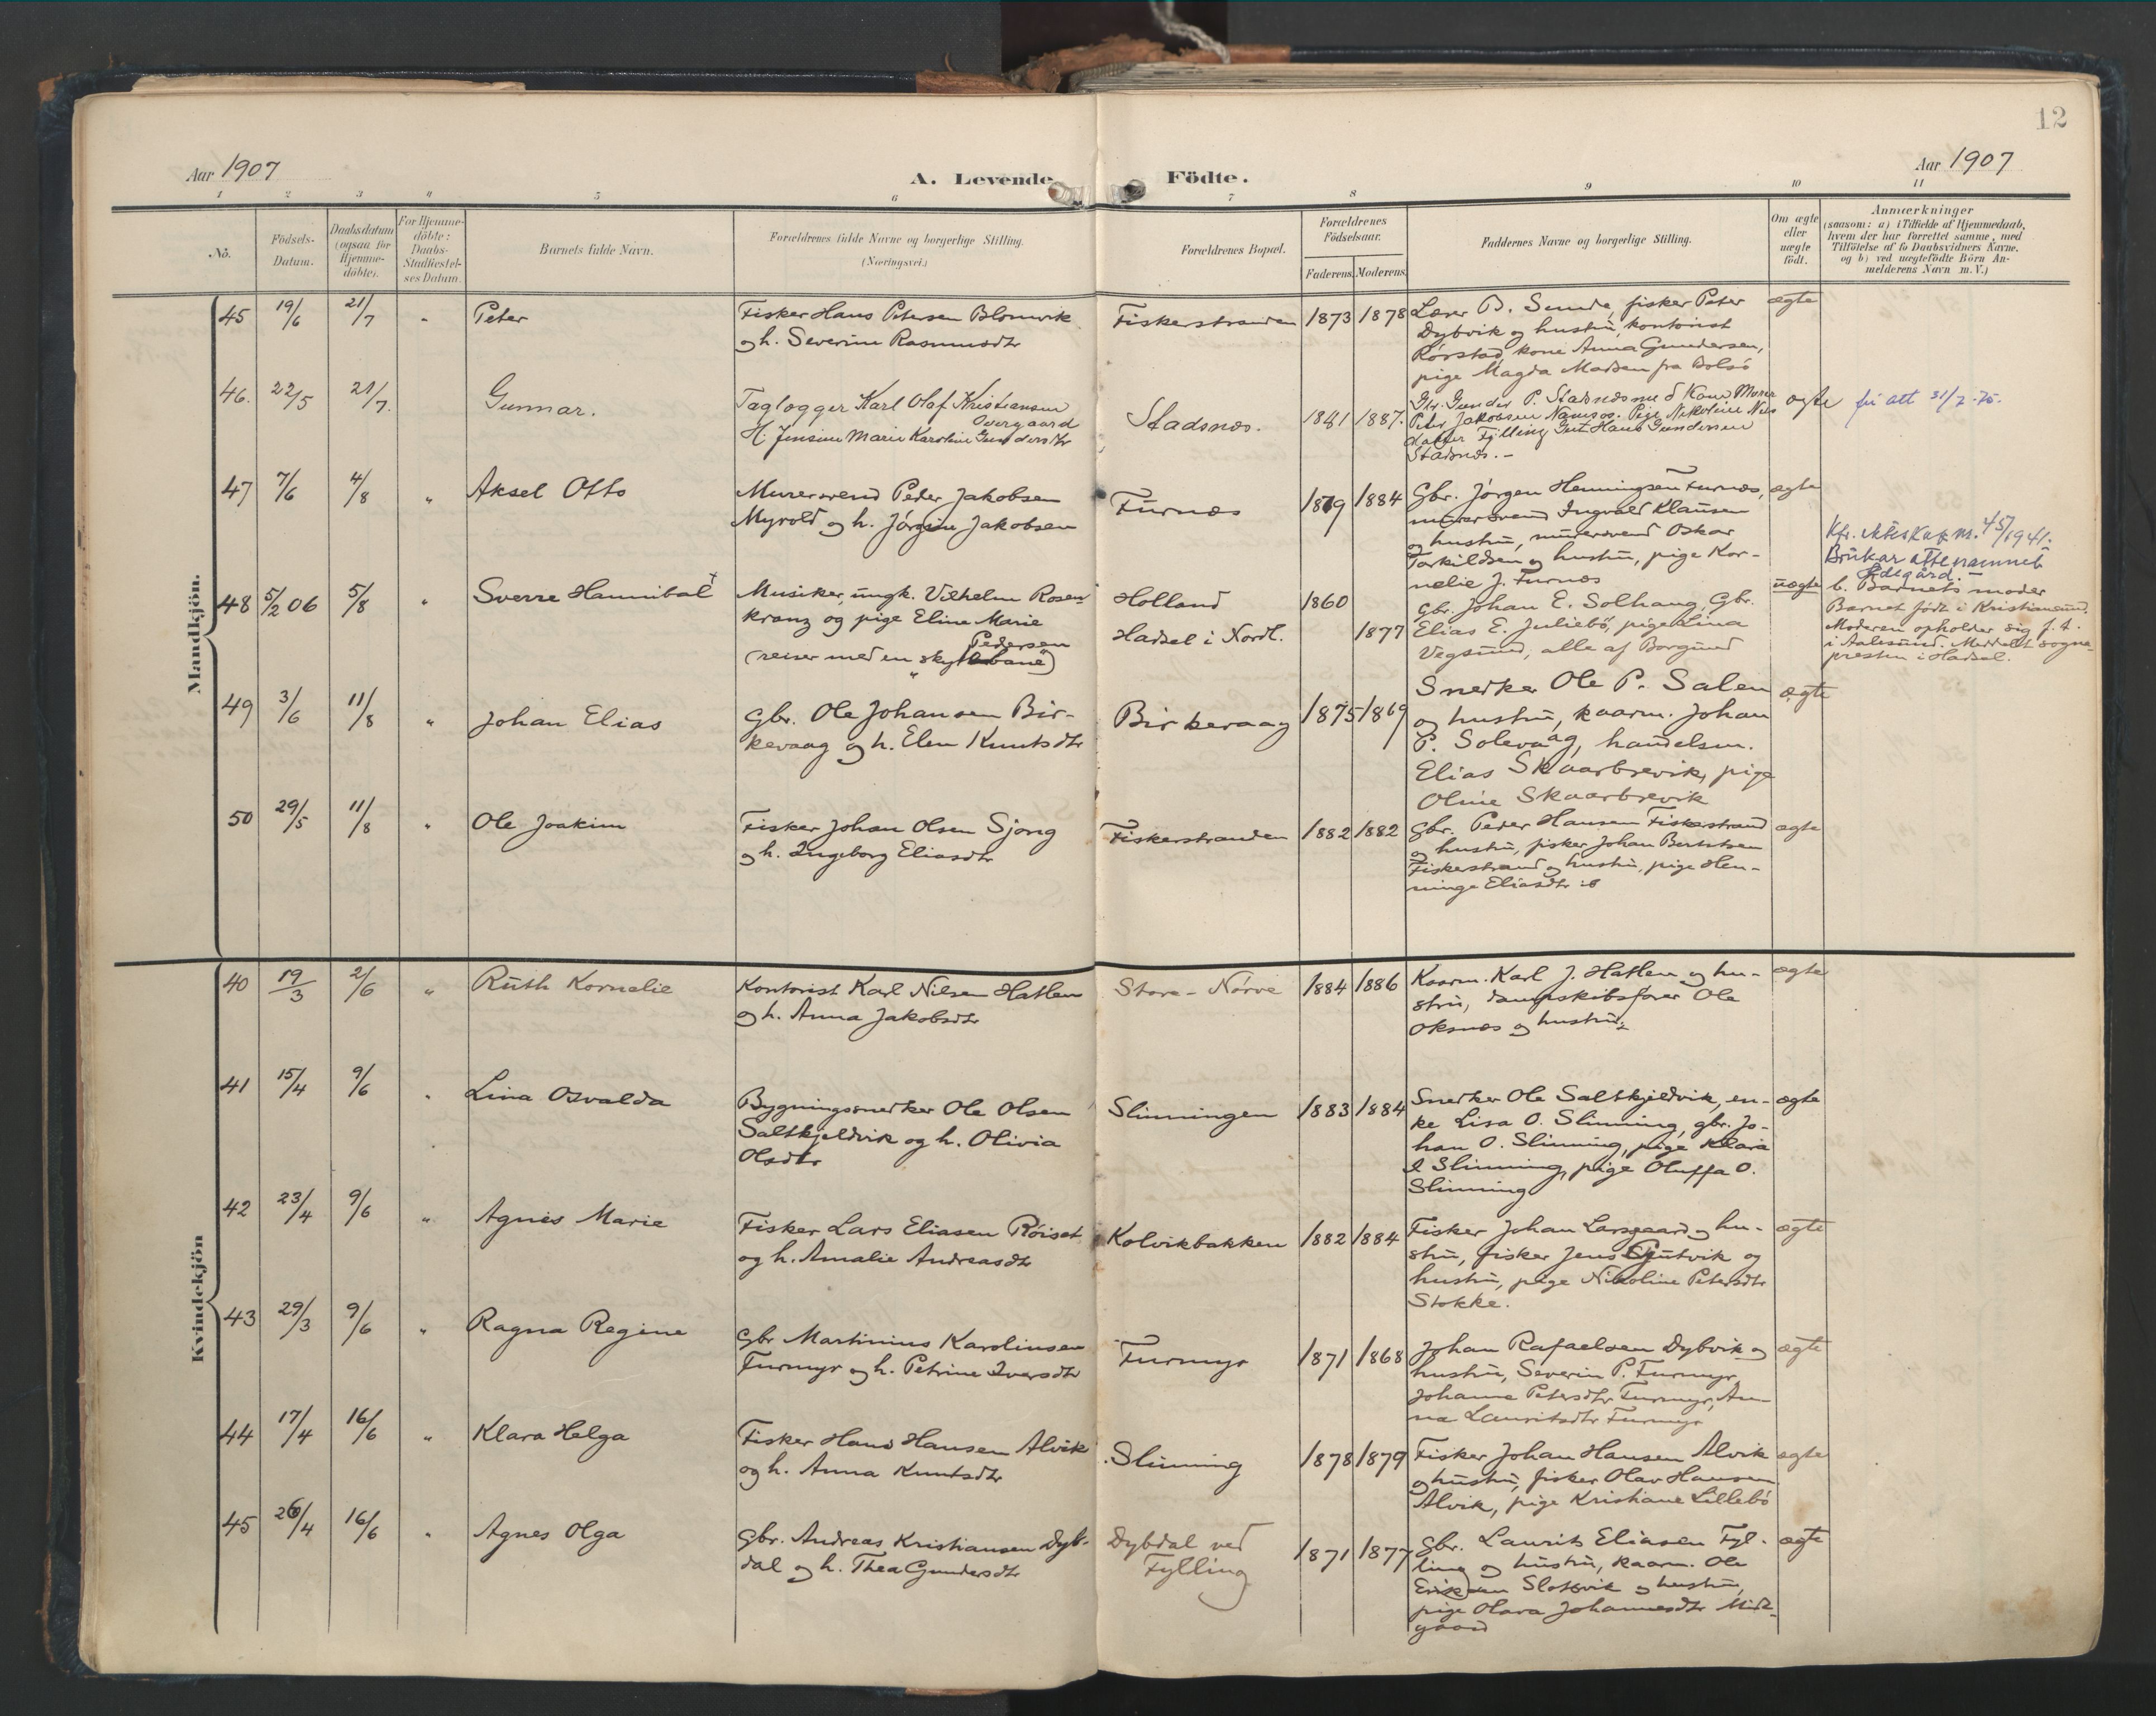 12
Aar 1907
A. Levende Födte.
Aar 1907
1 2 3 4 5 6 7 8 9 10 11
No.
Födsels-
Datum.
Daabsdatum
(ogsaa for
Hjemme-
döbte).
For Hjemme-
döbte:
Daabs-
Stadfæstel-
ses Datum.
Barnets fulde Navn.
Forældrenes fulde Navne og borgerlige Stilling.
(Næringsvei.)
Forældrenes Bopæl.
Forældrenes
Födselsaar.
Faderens. Moderens.
Faddernes Navne og borgerlige Stilling.
Om ægte
eller
uægte
födt.
Anmærkninger
(saasom: a) i Tilfælde af Hjemmedaab,
hvem der har forrettet samme, med
Tilföielse af to Daabsvidners Navne,
og b) ved uægtefödte Börn An-
melderens Navn m. V.)
Mandkjön.
45 19/6 21/7 " Peter
Fisker Hans Petersen Blomvik
og h. Severine Rasmusdtr
Fiskerstranden 1873 1878
Lærer B. Sunde, fisker Peter
Dybvik og hustru, kontorist
Rörstad, kone Anna Gundersen,
pige Magda Madsen fra Bolsö
ægte
46. 22/5 21/7. Gunnar.
Taglægger Karl Olaf Kristiansen
Overgaard
H. Jensine Marie Karoline Gundersdtr
Stadsnes. 1881 1887.
Gbr. Gunder P. Stadsnes med Kone Murer
Peter Jakobsen Namsos. Pige Nikoline Nils
datter Fylling Gut Hans Gundersen
Stadsnes. -
ægte
47 7/6 4/8 " Aksel Otto
Murersvend Peder Jakobsen
Myrold og h. Jörgine Jakobsen
Furnæs 1879 1884
Gbr. Jörgen Henningsen Furnæs,
murersvend Ingvald Klausen
og hustru, murersvend Oskar
Torkildsen og hustru, pige Kor-
nelie J. Furnæs
ægte
48 5/2 06 5/8 " Sverre Hannibal +
Musiker, ungk. Vilhelm Rosen-
kranz og pige Eline Marie
Pedersen
(reiser med en skydebane)
Holland 1860
Hadsel i Nordl. 1877
Gbr. Johan E. Solhaug, Gbr.
Elias E. Juliebö, pige Lina
Vegsund, alle af Borgund
uægte
Kfr. nr. 45/1941.
Brukar attenamnet
Ödegård. -
b. Barnets moder
Barnet födt i Kristiansund.
Moderen opholder sig f. t.
i Aalesund. Meddelt sogne-
presten i Hadsel.
49 3/6 11/8 " Johan Elias
Gbr. Ole Johansen Bir-
kevaag og h. Elen Knutsdtr
Birkevaag 1875 1869
Snedker Ole P. Salen
og hustru, kaarm. Johan
P. Solevaag, handelsm.
Elias Skaarbrevik, pige
Oline Skaarbrevik
ægte
50 29/5 11/8 " Ole Joakim
Fisker Johan Olsen Sjong
og h. Ingeborg Eliasdtr
Fiskerstranden 1882 1882
Gbr. Peder Hansen Fiskerstrand
og hustru, fisker Johan Berntsen
Fiskerstrand og hustru, pige Hen-
ninge Eliasdtr
ægte
Kvindekjön
40 19/3 2/6 " Ruth Kornelie
Kontorist Karl Nilsen Hatlen
og h. Anna Jakobsdtr
Store-Nörve 1884 1886
Kaarm. Karl J. Hatlen og hu-
stru, dampskibsförer Ole
Oksnæs og hustru
ægte
41 15/4 9/6 " Lina Osvalda
Bygningssnedker Ole Olsen
Saltkjeldvik og h. Olivia
Olsdtr
Slinningen 1883 1884
Snedker Ole Saltkjeldvik, en-
ke Lisa O. Slinning, gbr. Jo-
han O. Slinning, pige Klara
I Slinning, pige Oluffa O.
Slinning
ægte
42 23/4 9/6 " Agnes Marie
Fisker Lars Eliasen Röiset
og h. Amalie Andreasdtr
Kolvikbakken 1882 1884
Fisker Johan Larsgaard og hu-
stru, fisker Jens Gjutvik og
hustru, pige Nikoline Petersdtr
Stokke.
ægte
43 29/3 9/6 " Ragna Regine
Gbr Martinius Karolinsen
Furmyr og h. Petrine Iversdtr
Furmyr 1871 1868
Johan Rafaelsen Dybvik og
hustru, Severin P. Furmyr,
Johanne Petersdtr Furmyr, An-
na Lauritsdtr Furmyr
ægte
44 17/4 16/6 " Klara Helga
Fisker Hans Hansen Alvik
og h. Anna Knutsdtr
Slinning 1878 1879
Fisker Johan Hansen Alvik
og hustru, fisker Olav Hansen
Alvik, pige Kristiane Lillebö
ægte
45 26/4 16/6 " Agnes Olga
Gbr. Andreas Kristiansen Dyb-
dal og h. Thea Gundersdtr
Dybdal ved
Fylling
1871 1877
Gbr. Laurits Eliasen Fyl-
ling og hustru, kaarm. Ole
Eriksen Slotsvik og hustru,
pige Olava Johannesdtr Mid-
gaard
ægte